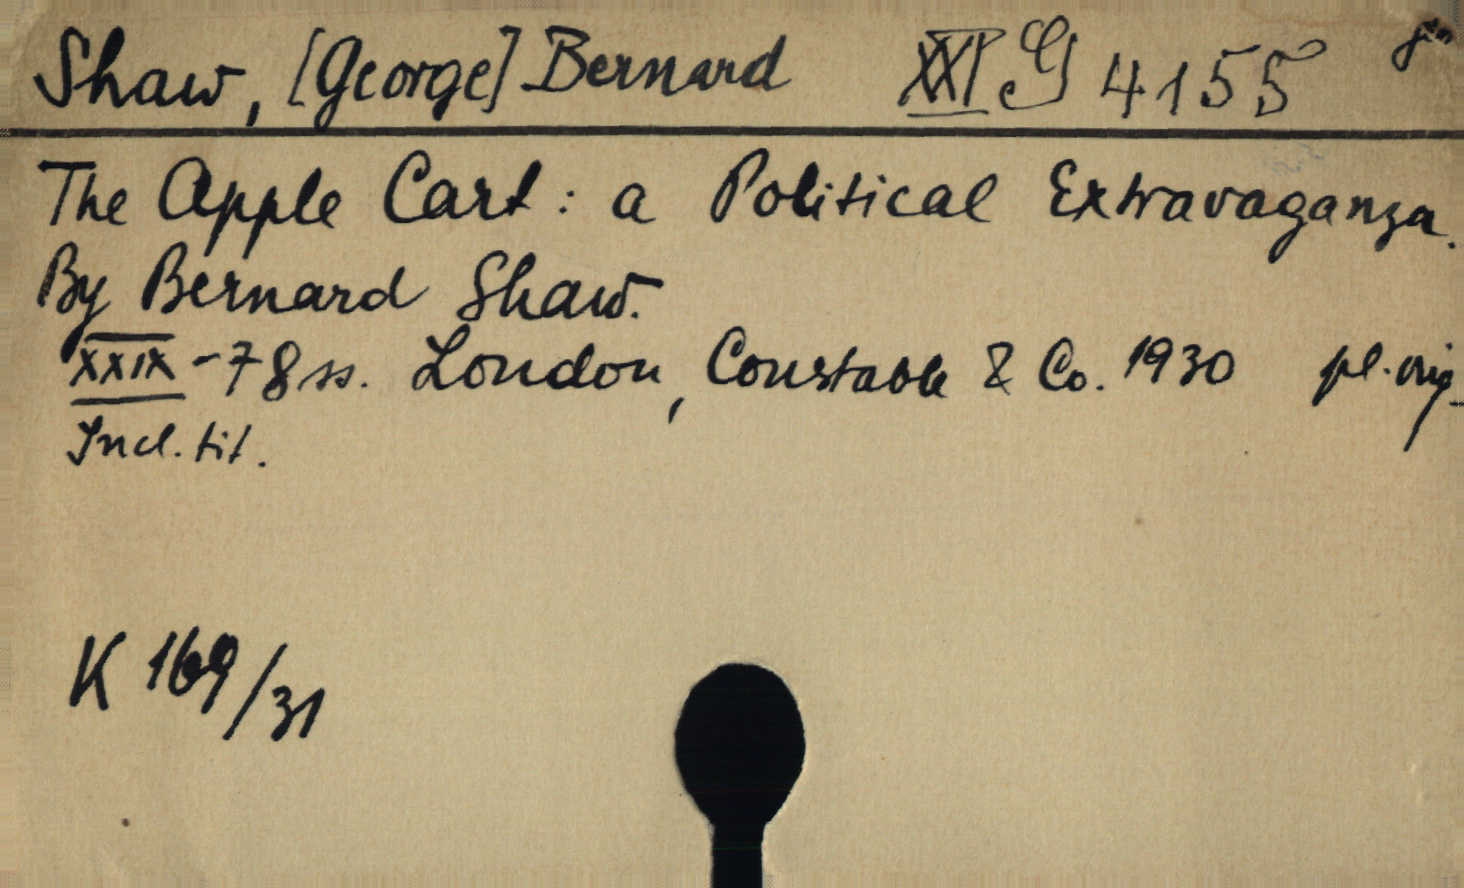 Shaw, [George] Bernard XXI G 4155
The Apple Cart: a Political Extravaganza.
By Bernard Shaw.
XXIX-78 ss. London, Constable & Co. 1930 pl. orig.
Incl. tit.
K 169/31